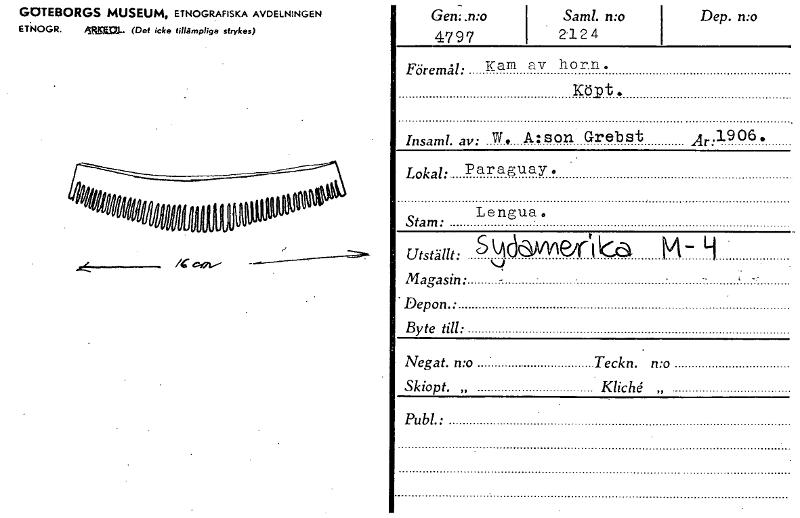 GÖTEBORGS MUSEUM, ETNOGRAFISKA AVDELNINGEN
ETNOGR. ARKEOL. (Det icke tillämpliga strykes)
16 cm
Gen. n:o Saml. n:o Dep. n:o
4797 2124
Föremål: Kam av horn.
Köpt.
Insaml. av: W. A:son Grebst År: 1906.
Lokal: Paraguay.
Stam: Lengua.
Utställt: Sydamerika M-4
Magasin:
Depon.:
Byte till:
Negat. n:o Teckn. n:o
Skiopt. „ Kliché „
Publ.: